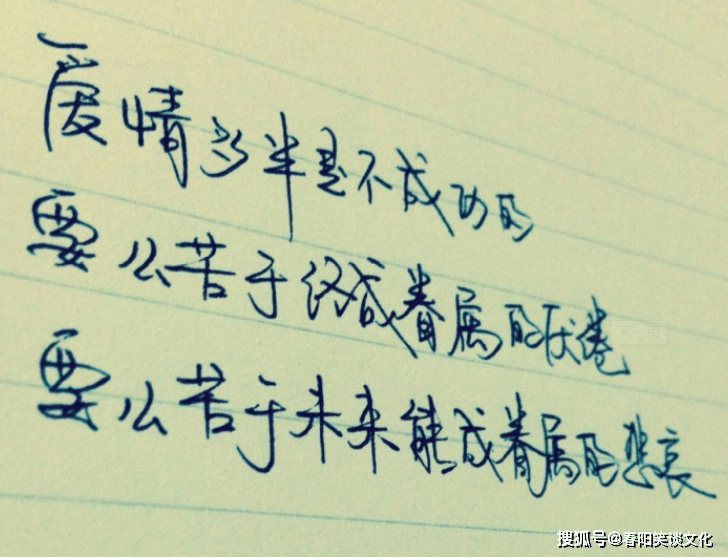 爱情多半是不成功的
要么苦于终成眷属的厌倦
要么苦于未来能成眷属的悲哀
搜狐号@春阳笑谈文化